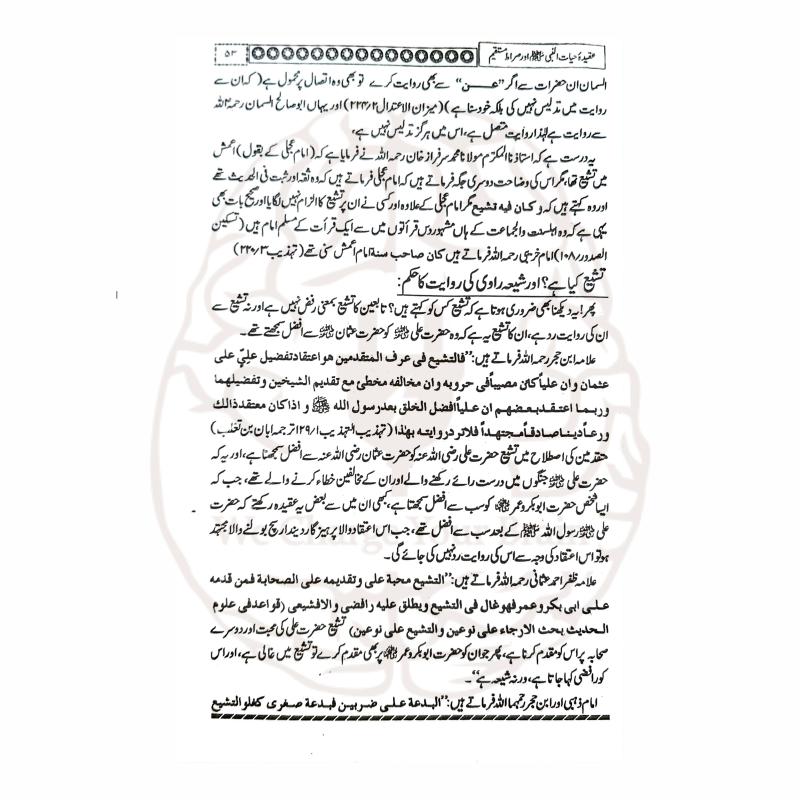 عقیدۂ حیات النبی ﷺ اور صراط مستقیم
۵۳
السمان ان حضرات سے اگر ”عــن“ سے بھی روایت کرے تو بھی وہ اتصال پر محمول ہے (کہ ان سے
روایت میں تدلیس نہیں کی بلکہ خود سنا ہے) (میزان الاعتدال ۲۲۴/۲) اور یہاں ابو صالح السمان رحمہ اللہ
سے روایت ہے لہٰذا روایت متصل ہے، اس میں ہرگز تدلیس نہیں ہے،
یہ درست ہے کہ استاذنا المکرم مولانا محمد سرفراز خان رحمہ اللہ نے فرمایا ہے کہ (امام عجلی کے بقول) اعمش
میں تشیع تھا، مگر اس کی وضاحت دوسری جگہ فرماتے ہیں کہ امام عجلی فرماتے ہیں کہ وہ ثقہ اور ثبت فی الحدیث تھے
اور وہ کہتے ہیں کہ و کان فیہ تشیع مگر امام عجلی کے علاوہ اور کسی نے ان پر تشیع کا الزام نہیں لگایا اور صحیح بات بھی
یہی ہے کہ وہ اہلسنت والجماعت کے ہاں مشہور دس قرأتوں میں سے ایک قرأت کے مسلم امام ہیں (تسکین
الصدور/۱۰۸) امام خریبی رحمہ اللہ فرماتے ہیں کان صاحب سنة امام اعمش سنی تھے (تہذیب ۲۲۰/۳)
تشیع کیا ہے؟ اور شیعہ راوی کی روایت کا حکم:
پھر! یہ دیکھنا بھی ضروری ہوتا ہے کہ تشیع کس کو کہتے ہیں؟ تابعین کا تشیع بمعنی رفض نہیں ہے اور نہ تشیع سے
ان کی روایت رد ہے، ان کا تشیع یہ ہے کہ وہ حضرت علی ؓ کو حضرت عثمان ؓ سے افضل سمجھتے تھے۔
علامہ ابن حجر رحمہ اللہ فرماتے ہیں: ”فالتشیع فی عرف المتقدمین ھو اعتقاد تفضیل علیّ علی
عثمان وان علیاً کان مصیباً فی حروبہ وان مخالفہ مخطئ مع تقدیم الشیخین و تفضیلھما
وربما اعتقد بعضھم ان علیاً افضل الخلق بعد رسول اللہ ﷺ و اذا کان معتقد ذالک
ورعاً دینا صادقاً مجتھداً فلا ترد روایتہ بھذا (تہذیب التہذیب ۱۲۹/۱ ترجمہ ابان بن تغلب)
متقدمین کی اصطلاح میں تشیع حضرت علی رضی اللہ عنہ کو حضرت عثمان رضی اللہ عنہ سے افضل سمجھنا ہے، اور یہ کہ
حضرت علی ؓ جنگوں میں درست رائے رکھنے والے اور ان کے مخالفین خطاء کرنے والے تھے، جب کہ
ایسا شخص حضرت ابوبکر و عمر ؓ کو سب سے افضل سمجھتا ہے، کبھی ان میں سے بعض یہ عقیدہ رکھتے کہ حضرت
علی ؓ رسول اللہ ﷺ کے بعد سب سے افضل تھے، جب اس اعتقاد والا پرہیز گار دیندار سچ بولنے والا مجتہد
ہو تو اس اعتقاد کی وجہ سے اس کی روایت رد نہیں کی جائے گی۔
علامہ ظفر احمد عثمانی رحمہ اللہ فرماتے ہیں: ”التشیع محبة علی و تقدیمہ علی الصحابة فمن قدمہ
علی ابی بکر و عمر فھو غال فی التشیع ویطلق علیہ رافضی والا فشیعی (قواعد فی علوم
الحدیث بحث الارجاء علی نوعین والتشیع علی نوعین) تشیع حضرت علی کی محبت اور دوسرے
صحابہ پر اس کو مقدم کرنا ہے، پھر جو ان کو حضرت ابوبکر و عمر ؓ پر بھی مقدم کرے تو تشیع میں غالی ہے، اور اس
کو رافضی کہا جاتا ہے، ورنہ شیعہ ہے“۔
امام ذہبی اور ابن حجر رحمہما اللہ فرماتے ہیں: ”البدعة علی ضربین فبدعة صغری کغلو التشیع